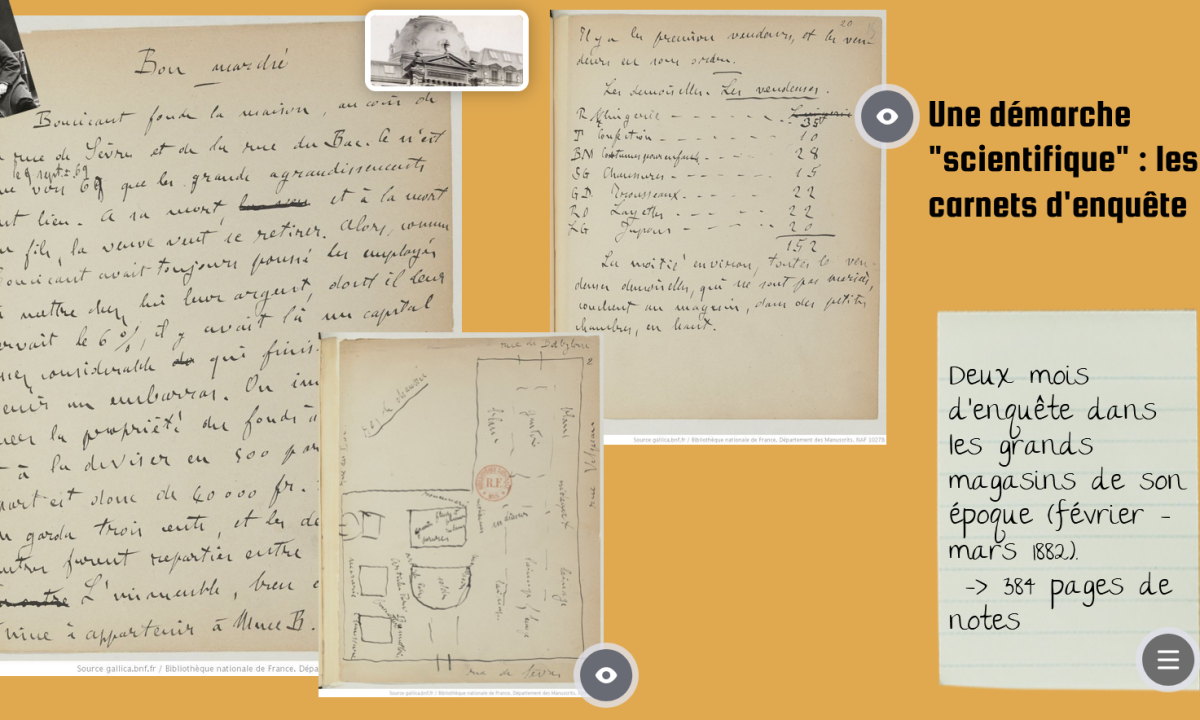 Bon marché
Boucicaut fonda la maison, au coin de
rue de Sèvres et de la rue du Bac. Ce n'est
le 9 sept. 69
vers 69 que les grands agrandissements
lieu. A sa mort, et à la mort
fils, la veuve veut se retirer. Alors, comme
Boucicaut avait toujours poussé les employés
mettre chez lui leur argent, dont il leur
servait le 6 %, il y avait là un capital
considérable qui finis
un embarras. On im
la propriété du fonds
à la diviser en 500 par
part est donc de 40 000 fr.
garda trois cents, et les
furent répartis entre
L'immeuble, bien
à appartenir à Mme B.
Source gallica.bnf.fr / Bibliothèque nationale de France, Dépa
20
Il y a les premiers vendeurs, et les ven-
deurs en sous ordre.
Les demoiselles. Les vendeuses.
Lingerie - - - - - 35
Confection - - - - 10
Costumes pour enfants - - - - 28
SG Chaussures - - - - 15
G.D. Trousseaux - - - - 22
Layettes - - - - 22
Jupons - - - - 20
152
La moitié environ, toutes les ven-
deuses demoiselles, qui ne sont pas mariées,
couchent au magasin, dans des petites
chambres, en haut.
Source gallica.bnf.fr / Bibliothèque nationale de France, Département des Manuscrits, NAF 10278
rue de Babylone
2
Rez de chaussée
R.F.
salon
rue de Sèvres
Source gallica.bnf.fr / Bibliothèque nationale de France, Département des Manuscrits,
Une démarche
"scientifique" : les
carnets d'enquête
Deux mois
d'enquête dans
les grands
magasins de son
époque (février -
mars 1882).
-> 384 pages de
notes